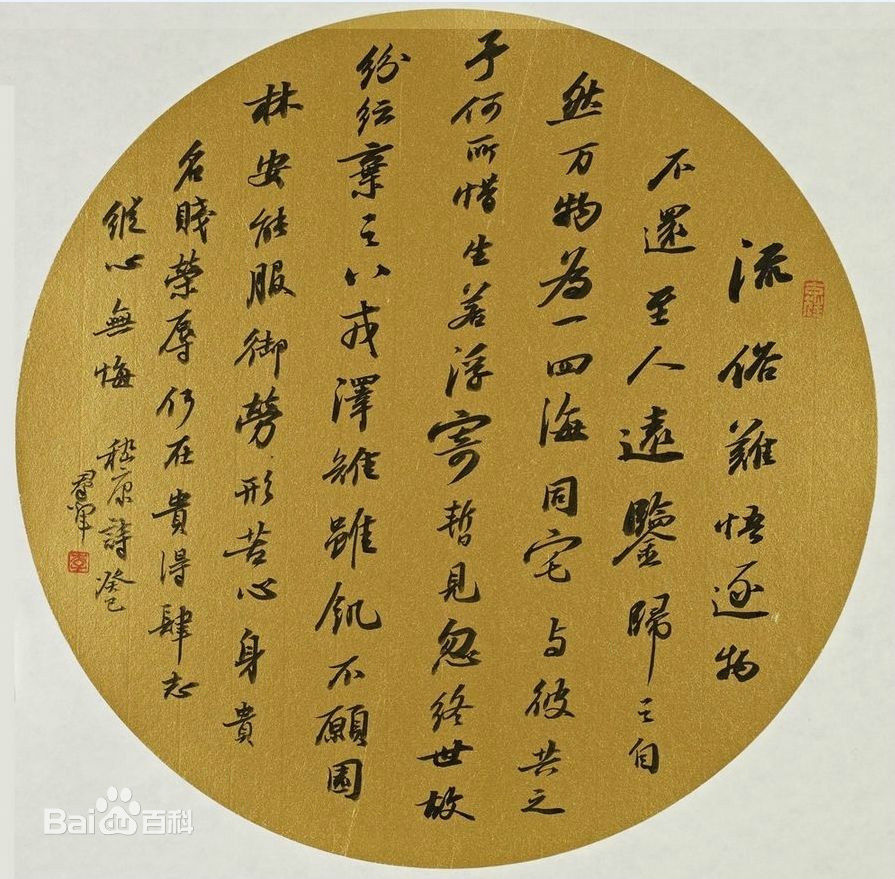 流俗難悟逐物
不還至人遠鑒歸之自
然万物為一四海同宅与彼共之
予何所惜生若浮寄暫見忽終世故
紛紜棄之八戎澤雉雖飢不願園
林安能服御勞形苦心身貴
名賤榮辱何在貴得肆志
縱心無悔 嵇康詩 癸巳
Bai du 百科